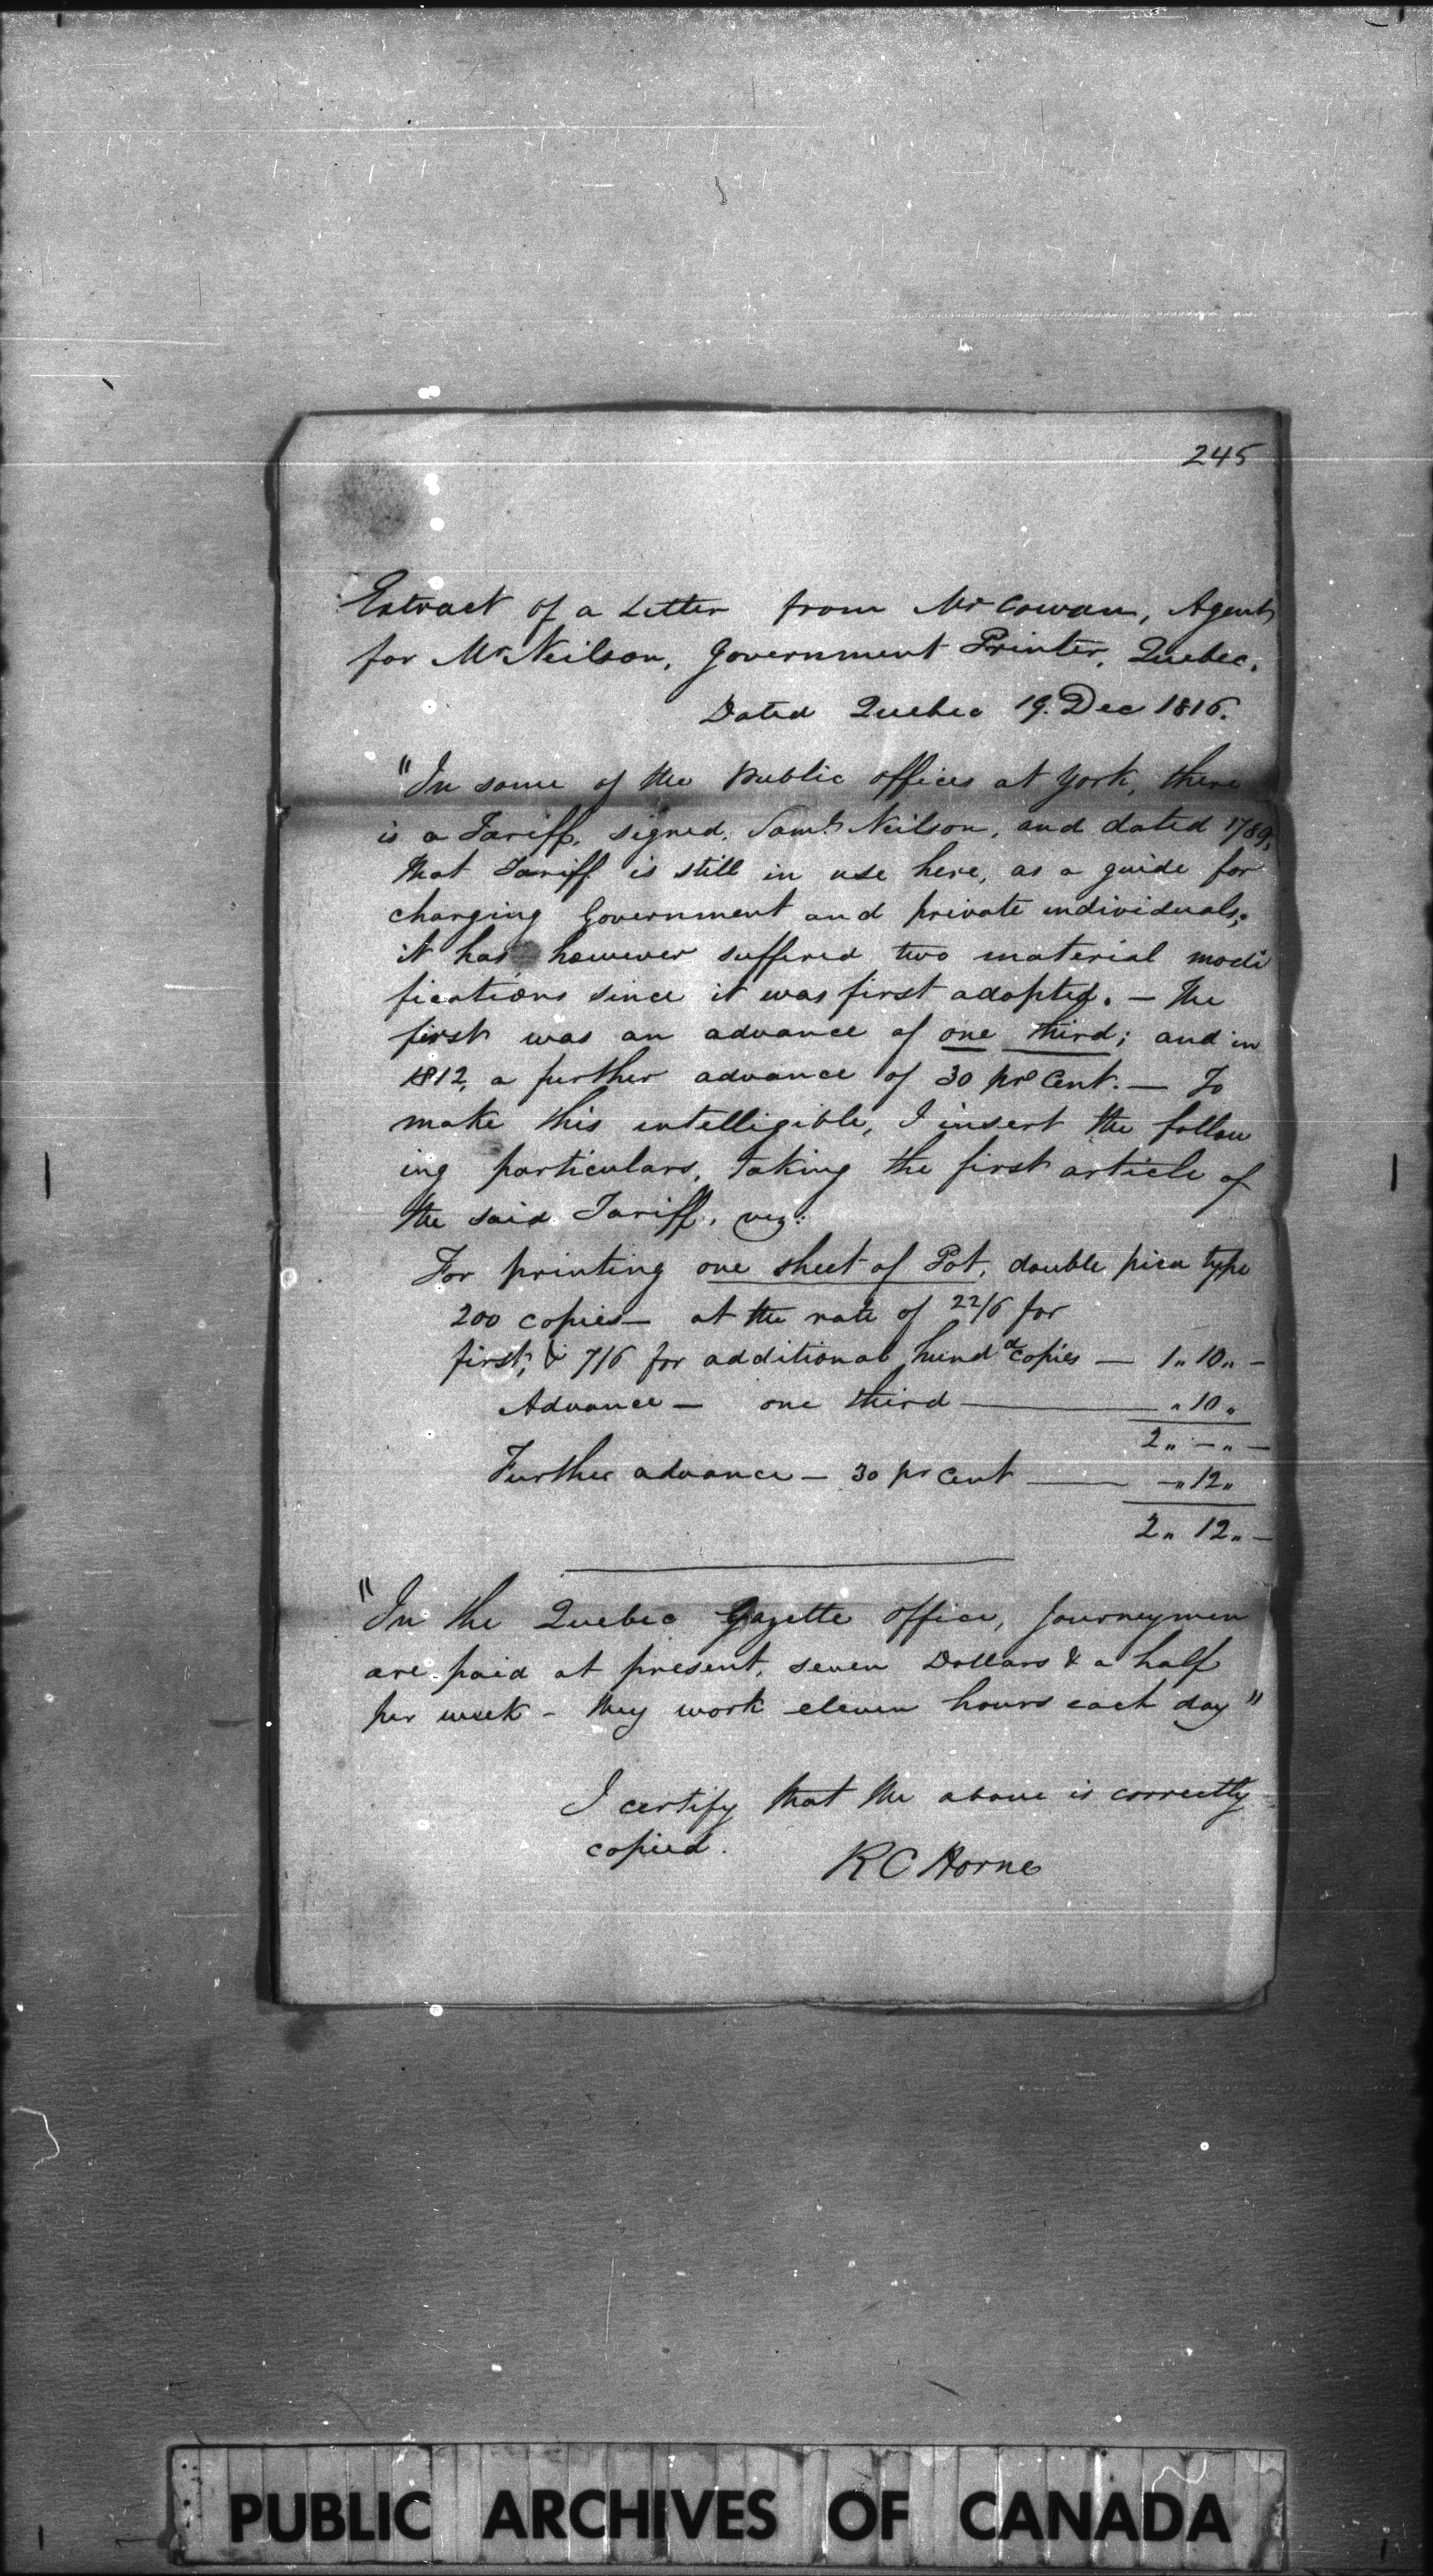 245
Extract of a Letter from Mr Cowan, Agent
for Mr Neilson, Government Printer, Quebec.
Dated Quebec 19. Dec 1816.
"In some of the Public offices at York, there
is a Tariff, signed, Saml Neilson, and dated 1789,
that Tariff is still in use here, as a guide for
charging Government and private individuals;
it has however suffered two material modi
fications since it was first adopted. — The
first was an advance of one third; and in
1812, a further advance of 30 pr Cent. — To
make this intelligible, I insert the follow
ing particulars, taking the first article of
the said Tariff, viz:
For printing one sheet of Pot, double pica type
200 copies — at the rate of 22/6 for
first, & 7/6 for additional hundd copies — 1„ 10„ —
Advance — one third — „ 10 „
2„ — „ —
Further advance — 30 pr Cent — —„ 12„
2„ 12„ —
"In the Quebec Gazette office, Journeymen
are paid at present, seven Dollars & a half
per week - they work eleven hours each day"
I certify that the above is correctly
copied.
R C Horne
PUBLIC ARCHIVES OF CANADA